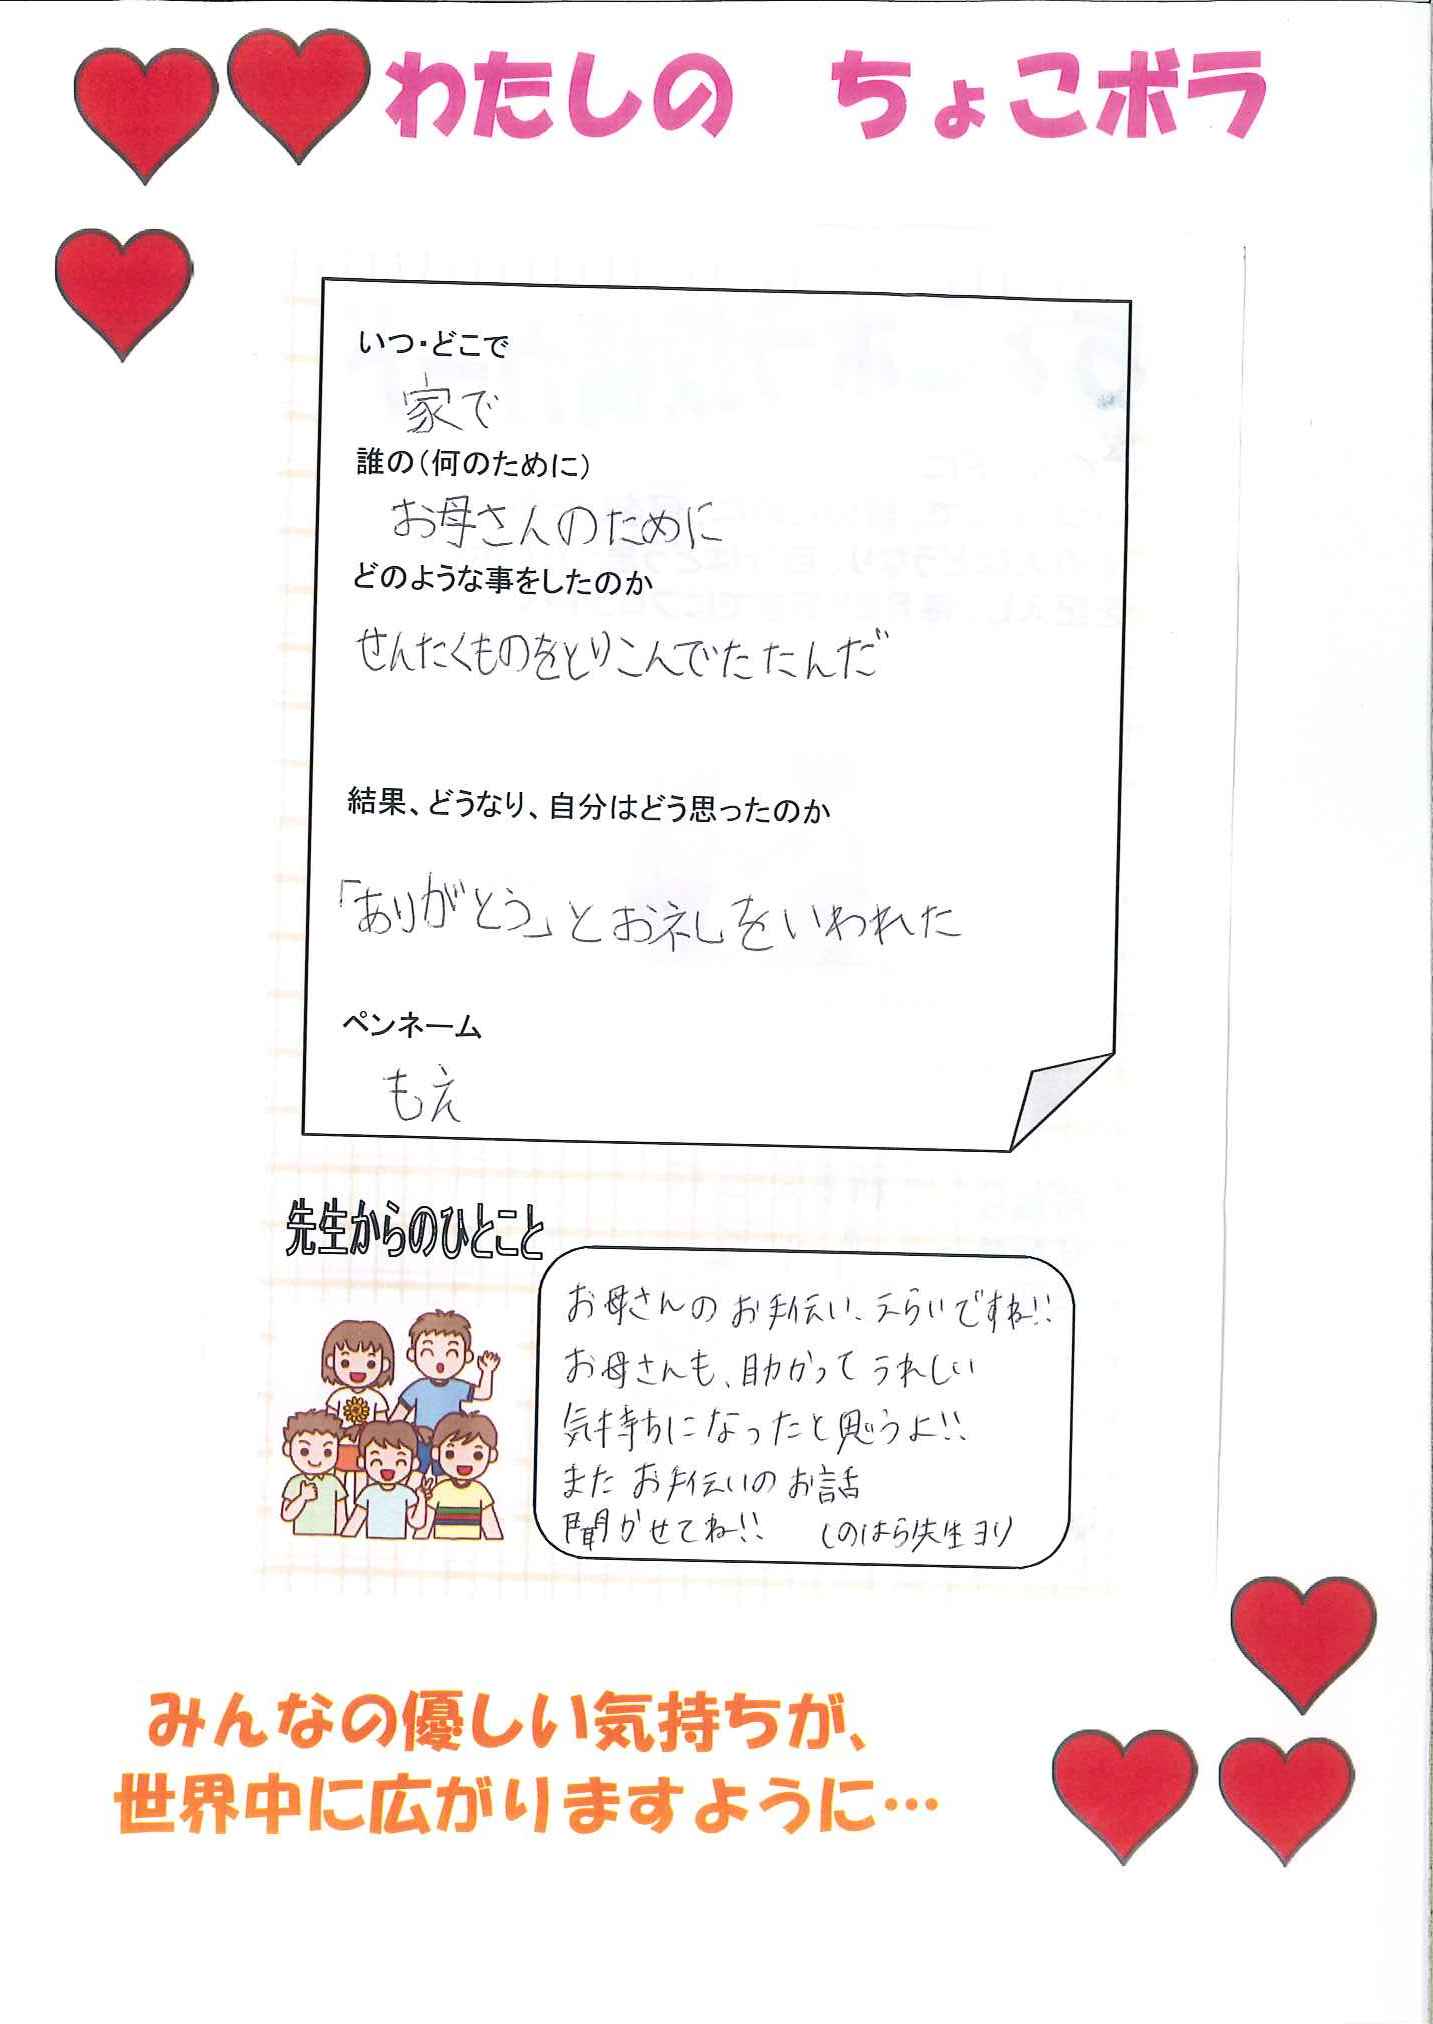 わたしの ちょこボラ
いつ・どこで
家で
誰の(何のために)
お母さんのために
どのような事をしたのか
せんたくものをとりこんでたたんだ
結果、どうなり、自分はどう思ったのか
「ありがとう」とお礼をいわれた
ペンネーム
もえ
先生からのひとこと
お母さんのお手伝い、えらいですね!!
お母さんも、助かってうれしい
気持ちになったと思うよ!!
またお手伝いのお話
聞かせてね!! しのはら先生ヨリ
みんなの優しい気持ちが、
世界中に広がりますように…